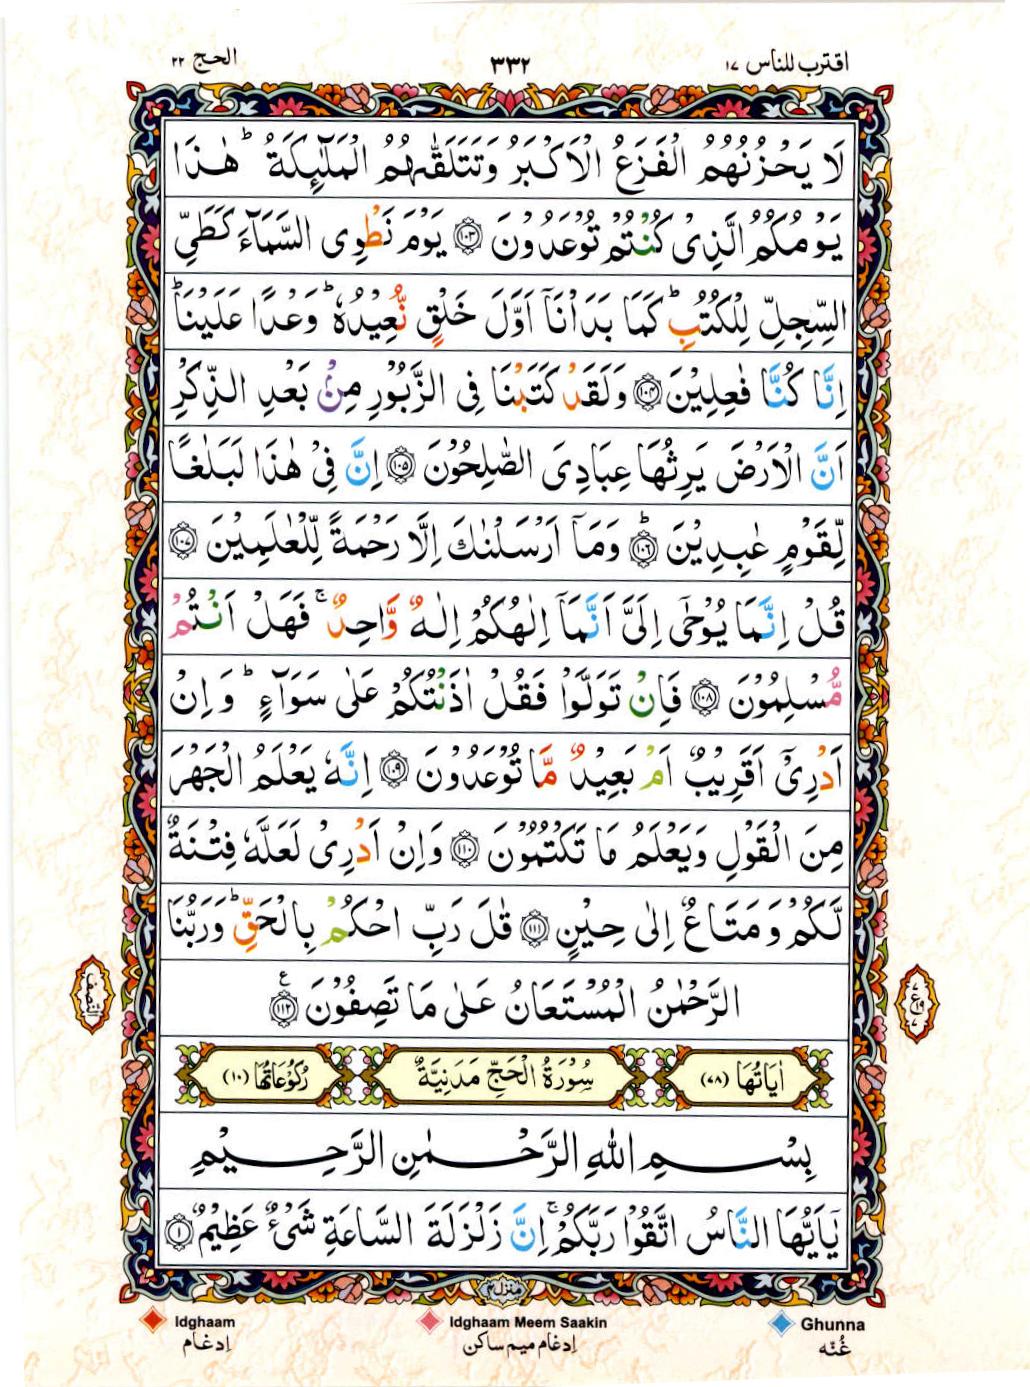 اقترب للناس ١٧ ٣٣٢ الحج ٢٢
لَا يَحْزُنُهُمُ الْفَزَعُ الْاَكْبَرُ وَتَتَلَقّٰىهُمُ الْمَلٰٓئِكَةُ ؕ هٰذَا
يَوْمُكُمُ الَّذِىْ كُنْتُمْ تُوْعَدُوْنَ ۝١٠٣ يَوْمَ نَطْوِى السَّمَآءَ كَطَىِّ
السِّجِلِّ لِلْكُتُبِ ؕ كَمَا بَدَاْنَاۤ اَوَّلَ خَلْقٍ نُّعِيْدُهٗ ؕ وَعْدًا عَلَيْنَا ؕ
اِنَّا كُنَّا فٰعِلِيْنَ ۝١٠٤ وَلَقَدْ كَتَبْنَا فِى الزَّبُوْرِ مِنْۢ بَعْدِ الذِّكْرِ
اَنَّ الْاَرْضَ يَرِثُهَا عِبَادِىَ الصّٰلِحُوْنَ ۝١٠٥ اِنَّ فِىْ هٰذَا لَبَلٰغًا
لِّقَوْمٍ عٰبِدِيْنَ ؕ۝١٠٦ وَمَاۤ اَرْسَلْنٰكَ اِلَّا رَحْمَةً لِّلْعٰلَمِيْنَ ۝١٠٧
قُلْ اِنَّمَا يُوْحٰٓى اِلَىَّ اَنَّمَاۤ اِلٰهُكُمْ اِلٰهٌ وَّاحِدٌ ۚ فَهَلْ اَنْتُمْ
مُّسْلِمُوْنَ ۝١٠٨ فَاِنْ تَوَلَّوْا فَقُلْ اٰذَنْتُكُمْ عَلٰى سَوَآءٍ ؕ وَاِنْ
اَدْرِىْۤ اَقَرِيْبٌ اَمْ بَعِيْدٌ مَّا تُوْعَدُوْنَ ۝١٠٩ اِنَّهٗ يَعْلَمُ الْجَهْرَ
مِنَ الْقَوْلِ وَيَعْلَمُ مَا تَكْتُمُوْنَ ۝١١٠ وَاِنْ اَدْرِىْ لَعَلَّهٗ فِتْنَةٌ
لَّكُمْ وَمَتَاعٌ اِلٰى حِيْنٍ ۝١١١ قٰلَ رَبِّ احْكُمْ بِالْحَقِّ ؕ وَرَبُّنَا
الرَّحْمٰنُ الْمُسْتَعَانُ عَلٰى مَا تَصِفُوْنَ ۝١١٢ ع
النصف
اٰيَاتُهَا (٧٨) سُوْرَةُ الْحَجِّ مَدَنِيَّةٌ رُكُوْعَاتُهَا (١٠)
بِسْمِ اللّٰهِ الرَّحْمٰنِ الرَّحِيْمِ
يٰۤاَيُّهَا النَّاسُ اتَّقُوْا رَبَّكُمْ ۚ اِنَّ زَلْزَلَةَ السَّاعَةِ شَىْءٌ عَظِيْمٌ ۝١
منزل ٤
Idghaam Idghaam Meem Saakin Ghunna
اِدغام اِدغام میم ساکن غُنّه